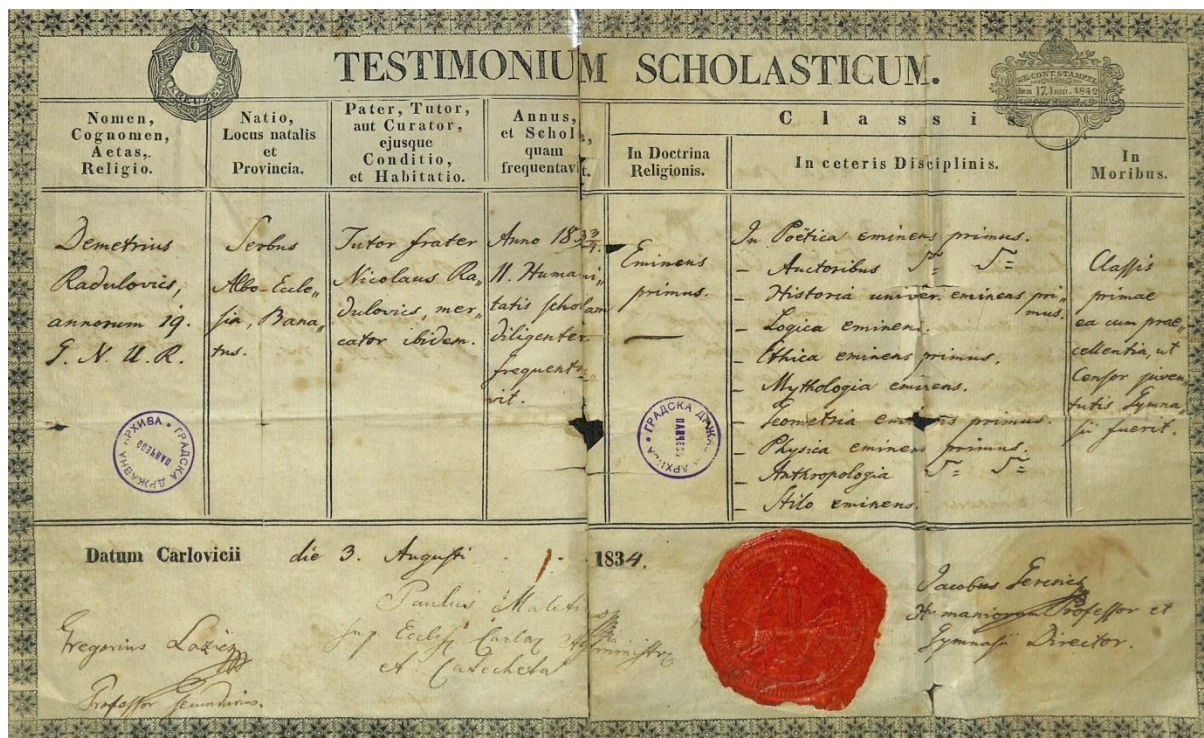 6
KREUZER
TESTIMONIUM SCHOLASTICUM.
CONT. STAMPEL
den 17. Jun. 1842
Nomen,
Cognomen,
Aetas,
Religio.
Natio,
Locus natalis
et
Provincia.
Pater, Tutor,
aut Curator,
ejusque
Conditio,
et Habitatio.
Annus,
et Schola,
quam
frequentavit.
Classis
In Doctrina
Religionis.
In ceteris Disciplinis.
In
Moribus.
Demetrius
Radulovics,
annorum 19.
G. N. U. R.
Serbus
Albo-Eccle„
sia, Bana„
tus.
Tutor frater
Nicolaus Ra„
dulovics, mer„
cator ibidem.
Anno 183 3/4.
II. Humani„
tatis scholam
diligenter
frequenta„
vit.
Eminens
primus.
In Poëtica eminens primus.
- Auctoribus
- Historia univer. eminens pri„
mus.
- Logica eminens.
- Ethica eminens primus.
- Mythologia eminens.
- Geometria eminens primus.
- Physica eminens primus.
- Anthropologia
- Stilo eminens.
Classis
primae
ea cum prae„
cellentia, ut
Censor juven„
tutis Gymna„
sii fuerit.
ГРАДСКА ДРЖАВНА АРХИВА
ПАНЧЕВО
ГРАДСКА ДРЖАВНА АРХИВА
ПАНЧЕВО
Datum Carlovicii die 3. Augusti 1834.
Gregorius Lazics
Professor secundarius.
Paulus
Eccles. Carlov. Administr.
et Catecheta
Jacobus Gercsics
Humaniorum Professor et
Gymnasii Director.